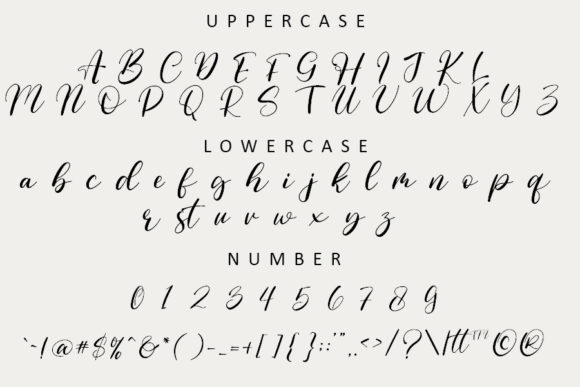 UPPERCASE
A B C D E F G H I J K L
M N O P Q R S T U V W X Y Z
LOWERCASE
a b c d e f g h i j k l m n o p q
r s t u v w x y z
NUMBER
0 1 2 3 4 5 6 7 8 9
`~!@#$%^&*()-_=+[]{}:;'",.<>/?\|tt™©®